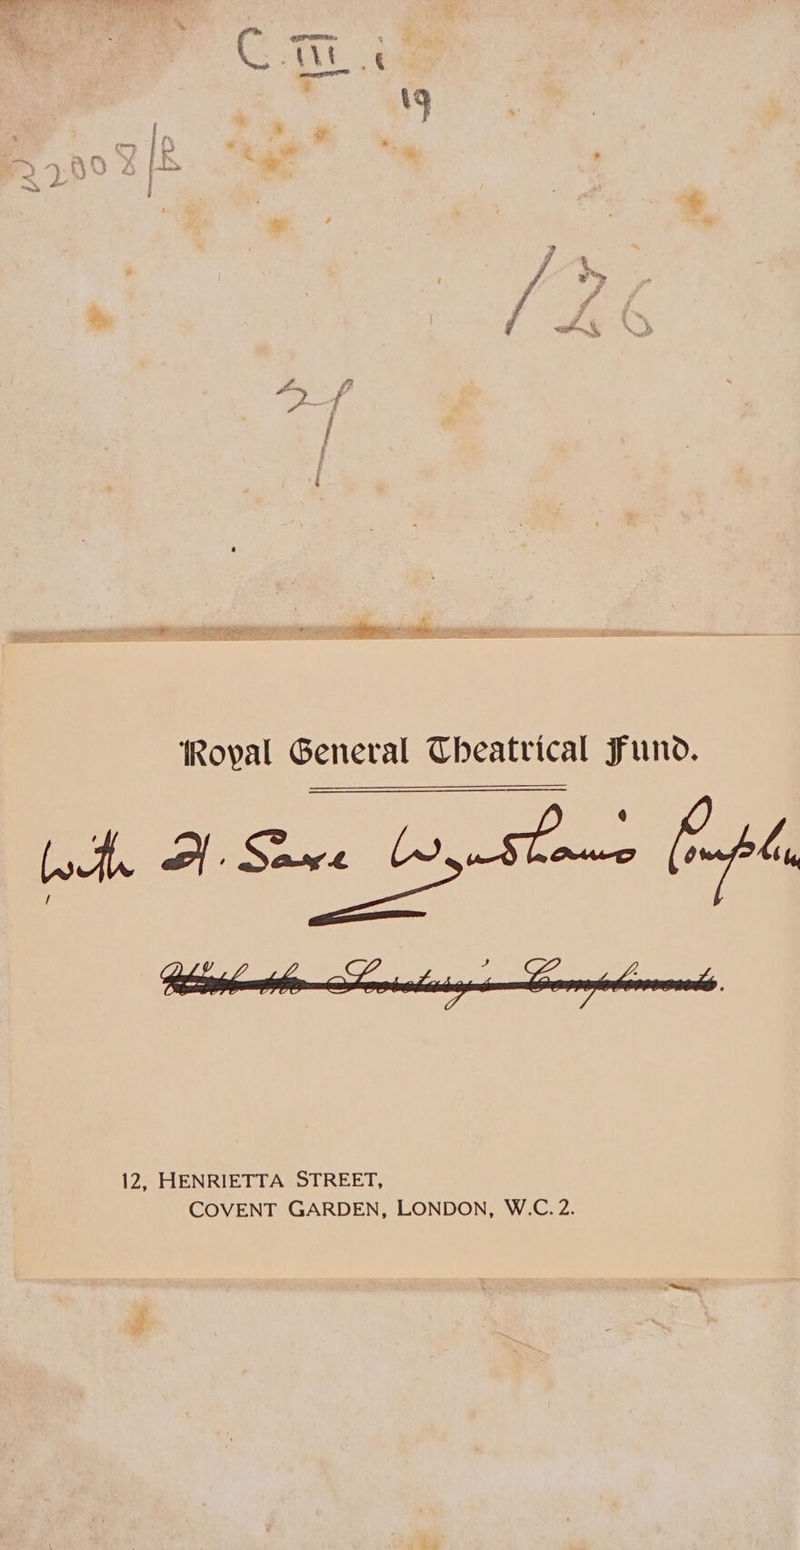 C.III.i
19
22008/R
/26
Royal General Theatrical Fund.
With H. Saxe Wyndham's
With the Secretary's Compliments.
12, HENRIETTA STREET,
COVENT GARDEN, LONDON, W.C. 2.